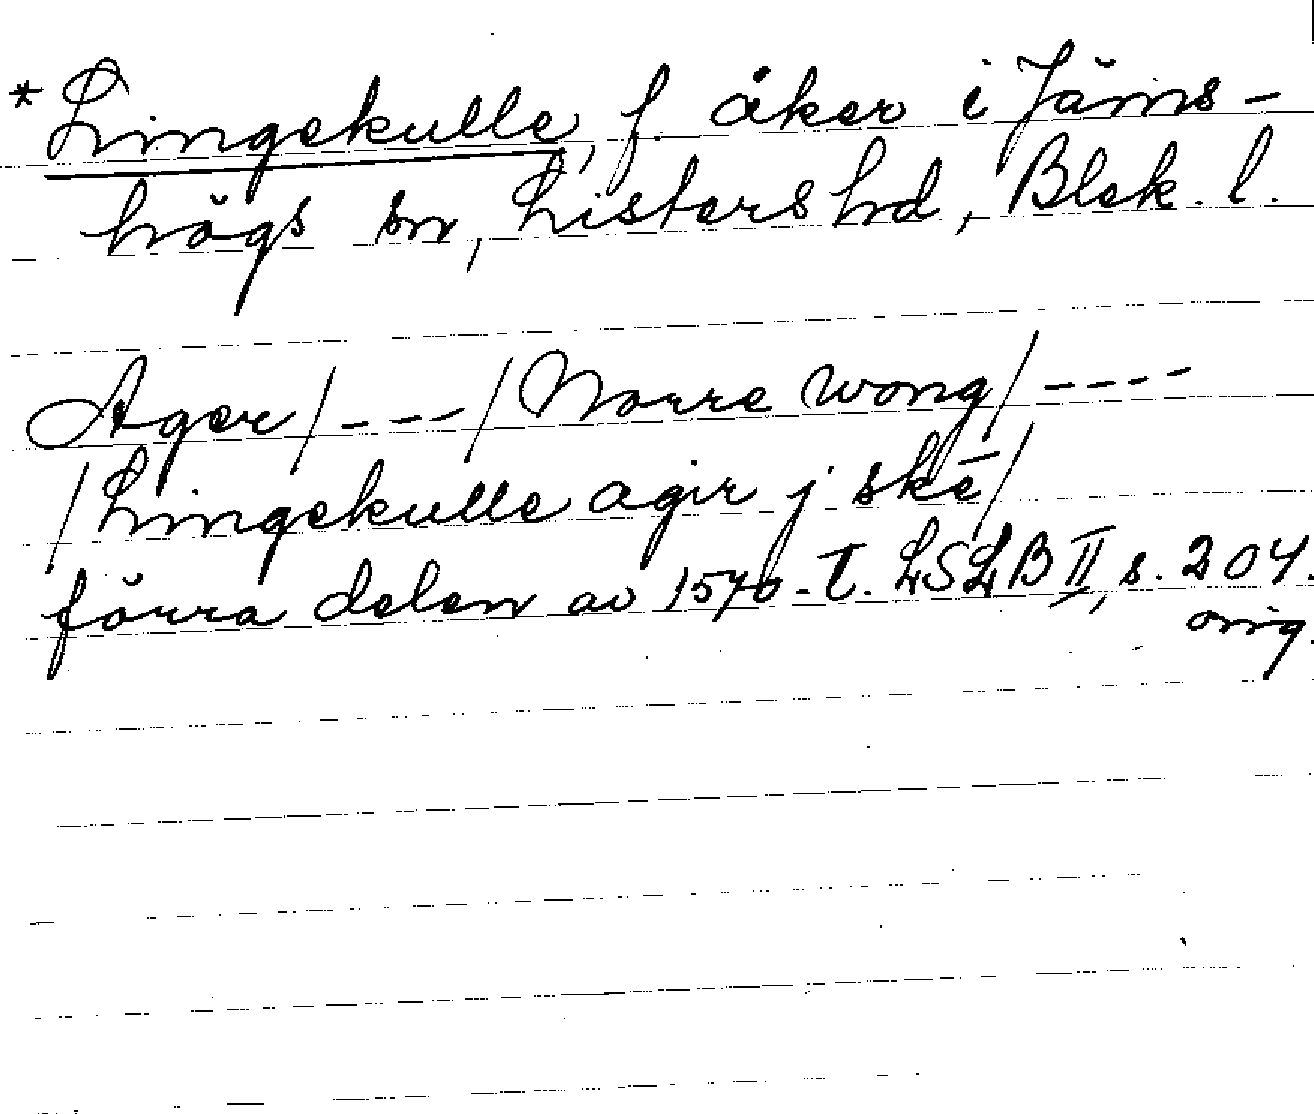 *Lingekulle, f. åker i Jäms-
högs sn, Listers hd, Blek. l.
Ager/---/Norre wong/----
/Lingekulle agir j skē/
förra delen av 1570-t. LSLB II, s. 204.
orig.